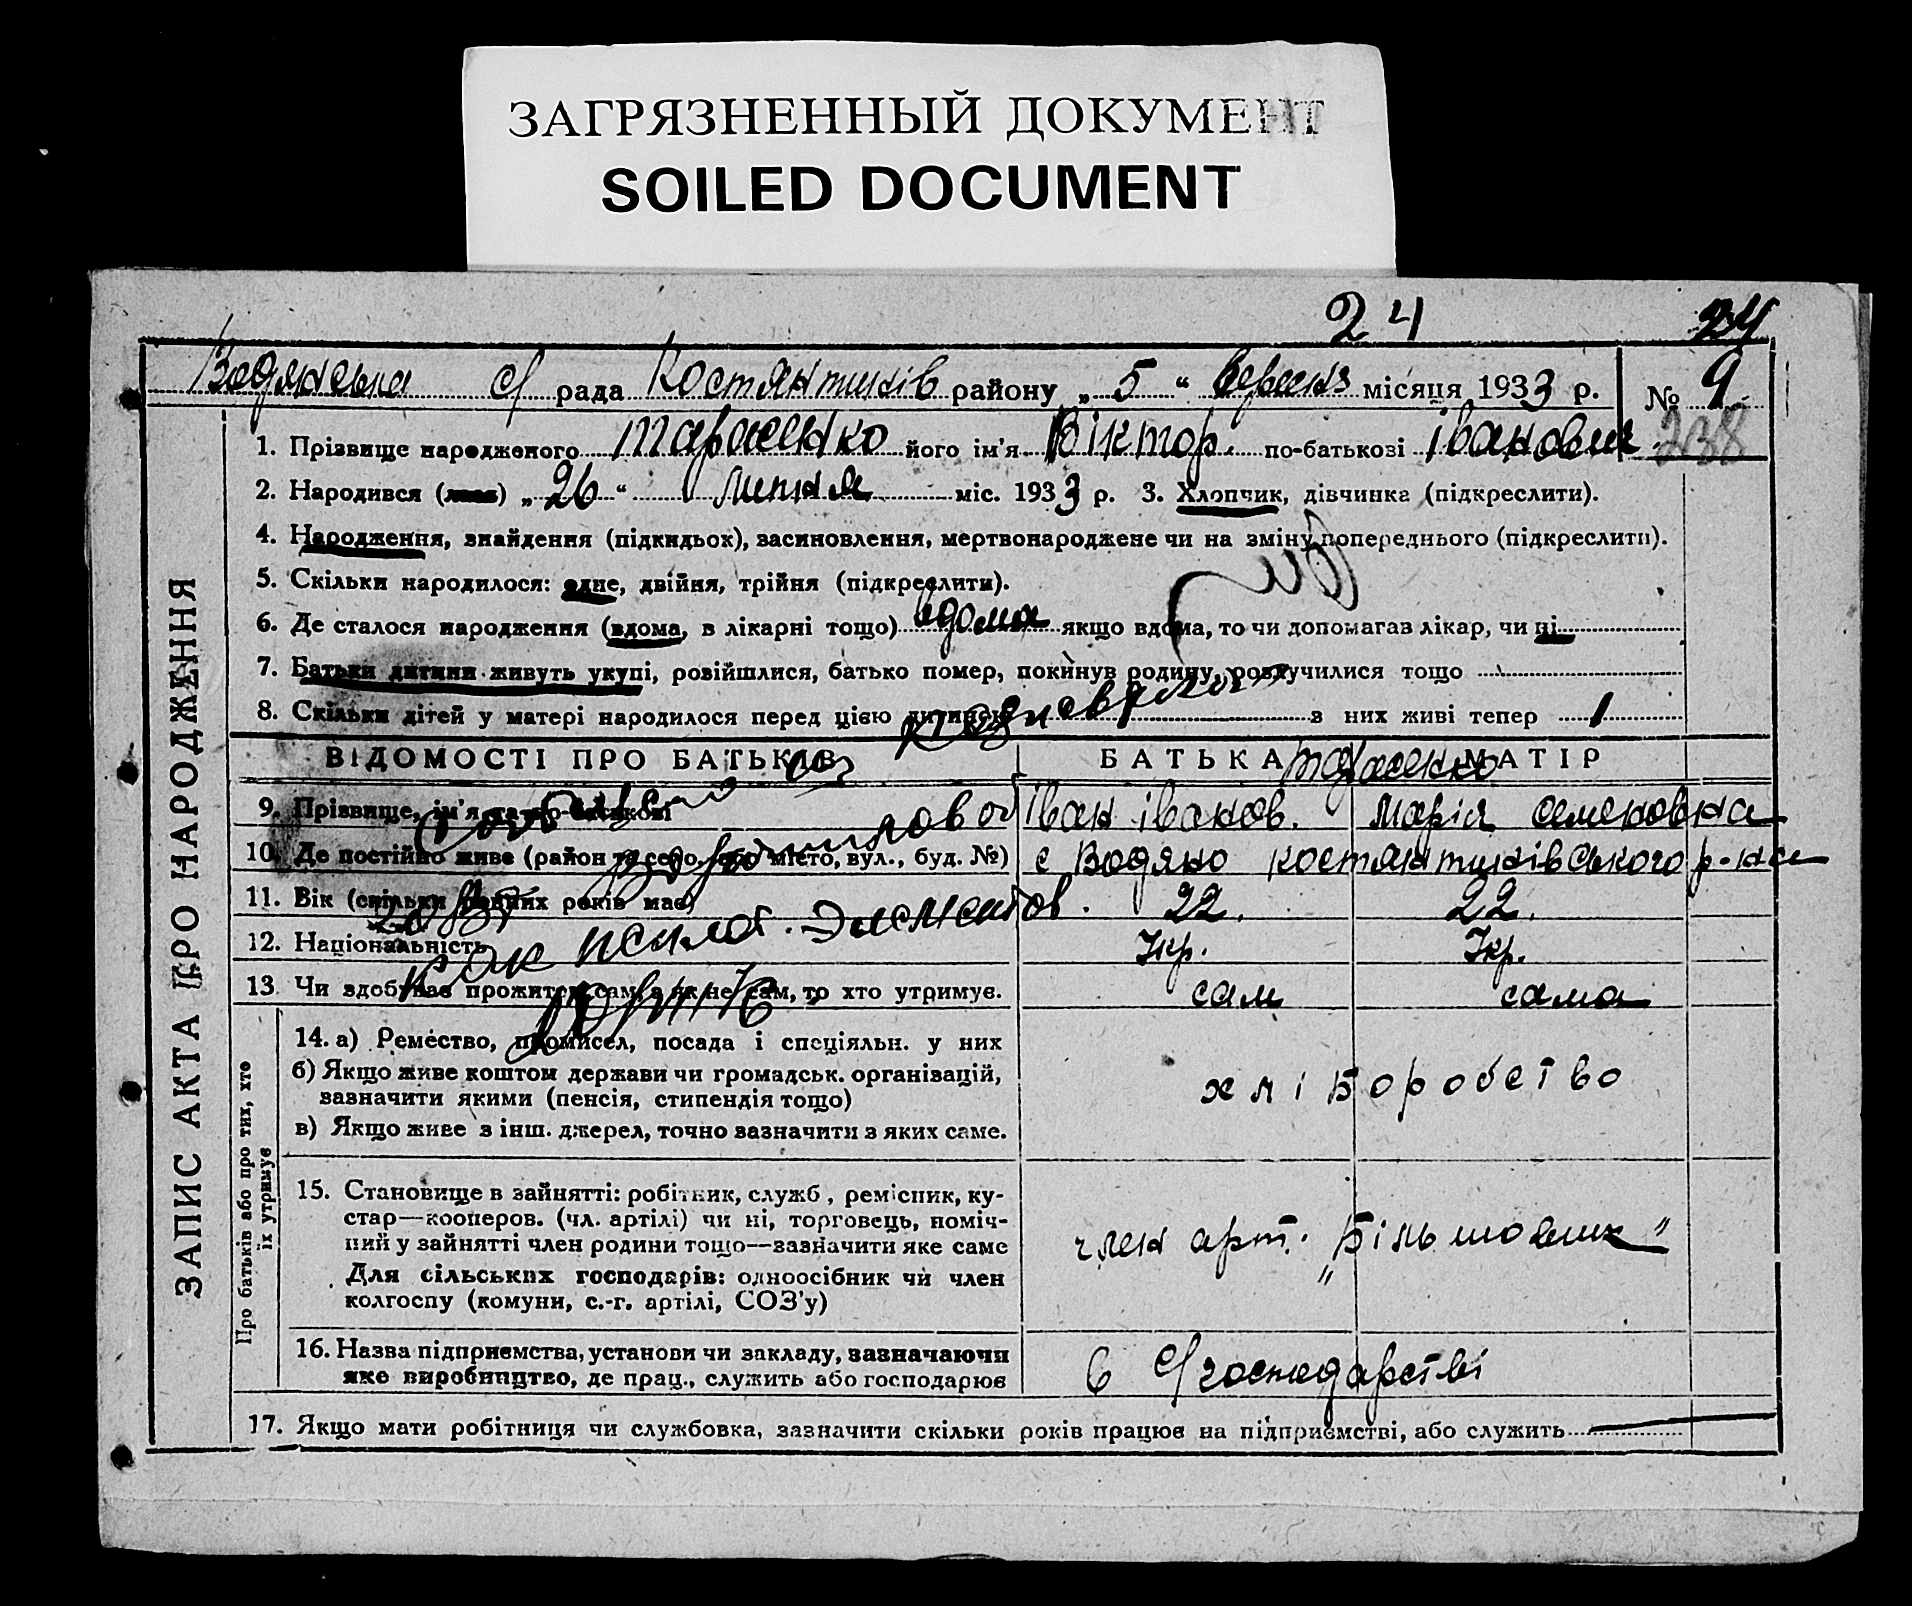 ЗАГРЯЗНЕННЫЙ ДОКУМЕНТ
SOILED DOCUMENT
24 24
Водянська с/ рада Костянтинків району „ 5 “ вересня місяця 1933 р. № 9
238
1. Прізвище народженого Тарасенко його ім'я Віктор. по-батькові Іванович
2. Народився (лась) „ 26 “ липня міс. 1933 р. 3. Хлопчик, дівчинка (підкреслити).
4. Народження, знайдення (підкидьох), засиновлення, мертвонароджене чи на зміну попереднього (підкреслити).
5. Скільки народилося: одне, двійня, трійня (підкреслити).
6. Де сталося народження (вдома, в лікарні тощо) вдома якщо вдома, то чи допомагав лікар, чи ні
7. Батьки дитини живуть укупі, розійшлися, батько помер, покинув родину, розлучилися тощо
8. Скільки дітей у матері народилося перед цією дитиною з них живі тепер 1
ВІДОМОСТІ ПРО БАТЬКІВ БАТЬКА МАТІР
Тарасенко
9. Прізвище, ім'я та по-батькові Іван Іванов. Марія Семеновна
10. Де постійно живе (район та село, або місто, вул., буд. №) с Водяно Костянтинівського р-на
11. Вік (скільки повних років має) 22. 22.
12. Національність Укр. Укр.
13. Чи здобував прожиток сам, а як не сам, то хто утримує. сам сама
ЗАПИС АКТА ПРО НАРОДЖЕННЯ
Про батьків або про тих, хто їх утримує
14. а) Ремество, промисел, посада і спеціяльн. у них
б) Якщо живе коштом держави чи громадськ. організацій,
зазначити якими (пенсія, стипендія тощо)
в) Якщо живе з інш. джерел, точно зазначити з яких саме.
хліборобство
15. Становище в зайнятті: робітник, служб, ремісник, ку-
стар—кооперов. (чл. артілі) чи ні, торговець, поміч-
ний у зайнятті член родини тощо—зазначити яке саме
Для сільських господарів: одноосібник чи член
колгоспу (комуни, с.-г. артілі, СОЗ'у)
член арт. „Більшовик”
16. Назва підприємства, установи чи закладу, зазначаючи
яке виробництво, де прац., служить або господарює
в с/господарстві
17. Якщо мати робітниця чи службовка, зазначити скільки років працює на підприємстві, або служить